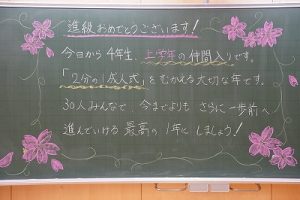 進級おめでとうございます!
今日から4年生。上学年の仲間入りです。
「2分の1成人式」をむかえる大切な年です。
30人みんなで 今までよりも さらに一歩前へ
進んでいける 最高の1年に しましょう!